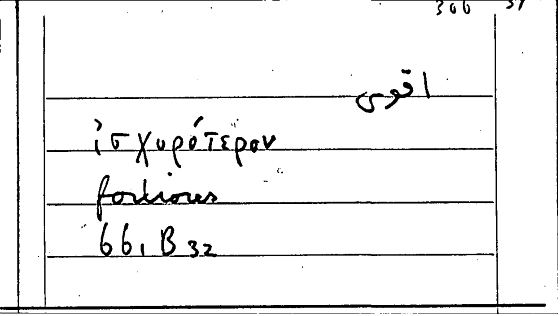 306 37
اقوى
ἰσχυρότερον
fortiores
66, B 32